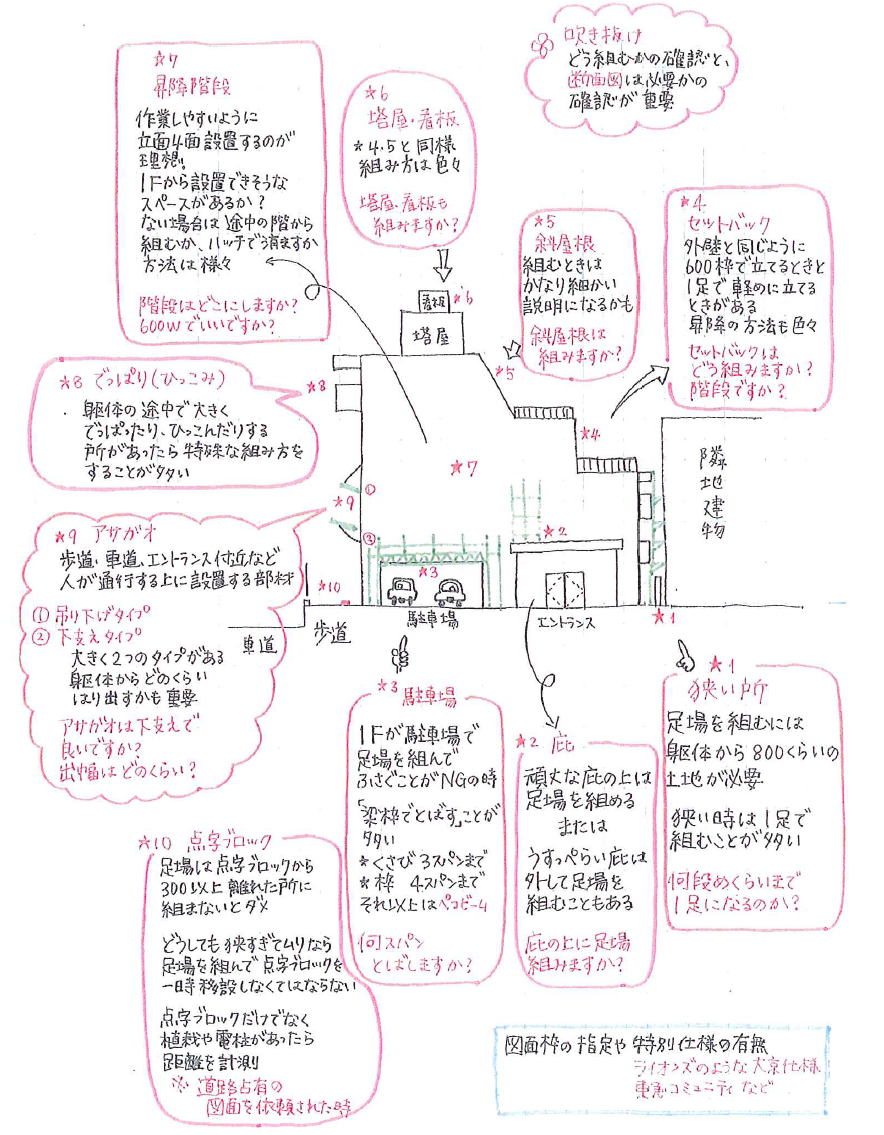 吹き抜け
どう組むかの確認と、
断面図は必要かの
確認が重要
★7
昇降階段
作業しやすいように
立面4面設置するのが
理想。
1Fから設置できそうな
スペースがあるか?
ない場合は途中の階から
組むか、ハッチで済ますか
方法は様々
階段はどこにしますか?
600Wでいいですか?
★6
塔屋・看板
★4,5と同様
組み方は色々
塔屋・看板も
組みますか?
★5
斜屋根
組むときは
かなり細かい
説明になるかも
斜屋根は
組みますか?
★4
セットバック
外壁と同じように
600枠で立てるときと
1足で軽めに立てる
ときがある
昇降の方法も色々
セットバックは
どう組みますか?
階段ですか?
看板
★6
塔屋
★5
★8
★4
★7
隣地建物
★8 でっぱり(ひっこみ)
・躯体の途中で大きく
でっぱったり、ひっこんだりする
所があったら特殊な組み方を
することが多い
★9
①
②
★2
★3
★10
★1
駐車場
エントランス
車道
歩道
★9 アサガオ
歩道・車道、エントランス付近など
人が通行する上に設置する部材
① 吊り下げタイプ
② 下支えタイプ
大きく2つのタイプがある
躯体からどのくらい
はり出すかも重要
アサガオは下支えで
良いですか?
出幅はどのくらい?
★3 駐車場
1Fが駐車場で
足場を組んで
ふさぐことがNGの時
「梁枠でとばす」ことが
多い
★くさび 3スパンまで
★枠 4スパンまで
それ以上はペコビーム
何スパン
とばしますか?
★2 庇
頑丈な庇の上は
足場を組める
または
うすっぺらい庇は
外して足場を
組むこともある
庇の上に足場
組みますか?
★1
狭い所
足場を組むには
躯体から800くらいの
土地が必要
狭い時は1足で
組むことが多い
何段めくらいまで
1足になるのか?
★10 点字ブロック
足場は点字ブロックから
300以上離れた所に
組まないとダメ
どうしても狭すぎてムリなら
足場を組んで点字ブロックを
一時移設しなくてはならない
点字ブロックだけでなく
植栽や電柱があったら
距離を計測
※ 道路占有の
図面を依頼された時
図面枠の指定や特別仕様の有無
ライオンズのような大京仕様
東急コミュニティなど